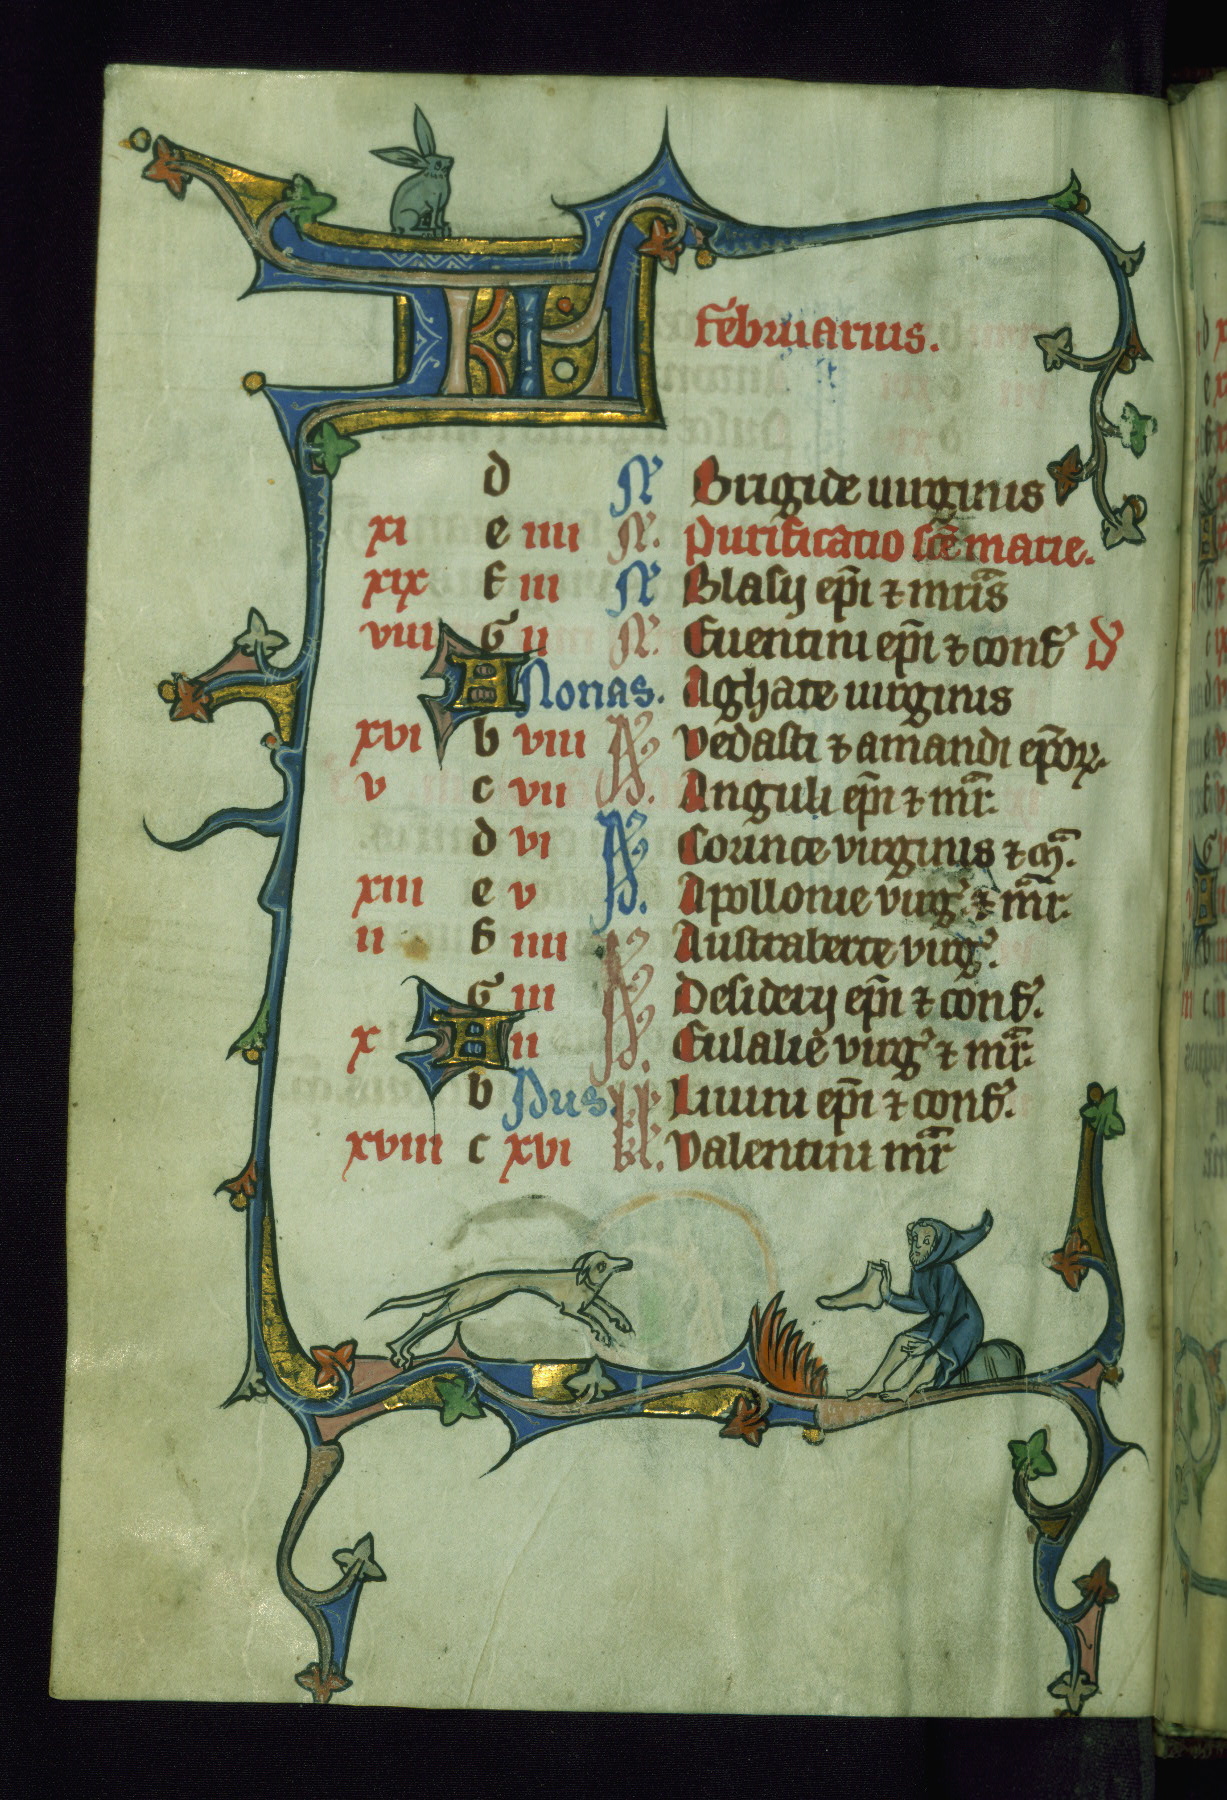 KL februarius.
d N Brigide uirginis
xi e iiii N. Purificatio sce marie.
xix f iii N Blasij epi et mris
viii G ii N. Euentini epi et conf' D
A Nonas. Aghate uirginis
xvi b viii Vedasti et amandi epor.
v c vii Id. Anguli epi et mr.
d vi Corince virginis et m.
xiii e v Id. Apollonie virg' et mr.
ii f iiii Austraberte virg'.
G iii Desiderij epi et conf'.
x A ii Id. Eulalie virg' et mr.
b Idus. Liuini epi et conf'.
xviii c xvi kl. Valentini mr